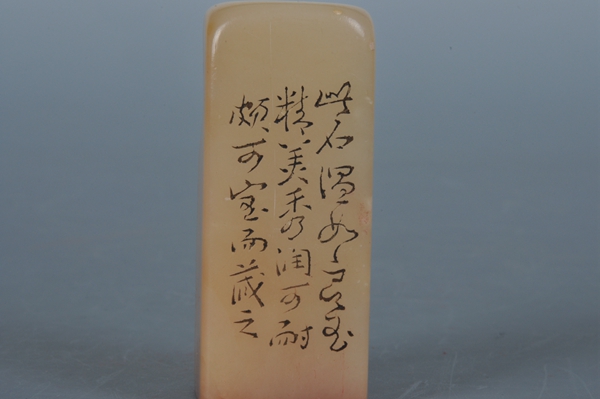 此石温如良玉
精美秀润可耐
颇可宝而藏之